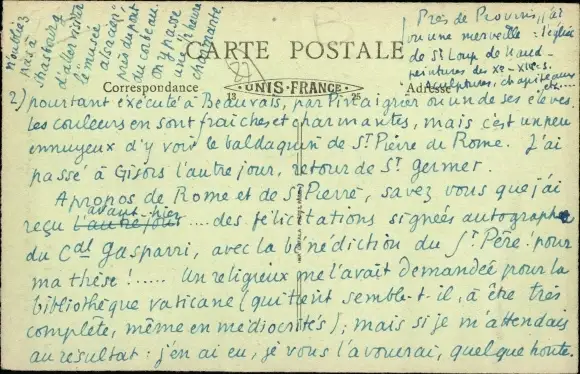 n'oubliez
pas à
Strasbourg
d'aller visiter
le musée
alsacien
près du pont
du corbeau.
on y passe
une 1/2 heure
charmante.
Près de Provins, j'ai
vu une merveille : l'église
de St Loup de Naud -
peintures des Xe - XIe s.
sculptures, chapiteaux
etc...
CARTE POSTALE
Correspondance
UNIS-FRANCE
13 25
Adresse
2) pourtant exécuté à Beauvais, par Pinaigrier ou un de ses élèves.
Les couleurs en sont fraîches et charmantes, mais c'est un peu
ennuyeux d'y voir le baldaquin de St Pierre de Rome. J'ai
passé à Gisors l'autre jour, retour de St Germer.
A propos de Rome et de St Pierre, savez vous que j'ai
avant-hier
reçu l'autre jour .... des félicitations signées autographe
du Cal Gasparri, avec la bénédiction du St Père pour
ma thèse !...... Un religieux me l'avait demandée pour la
bibliothèque vaticane (qui tient semble-t-il, à être très
complète, même en médiocrités) ; mais si je m'attendais
au résultat : j'en ai eu, je vous l'avouerai, quelque honte.